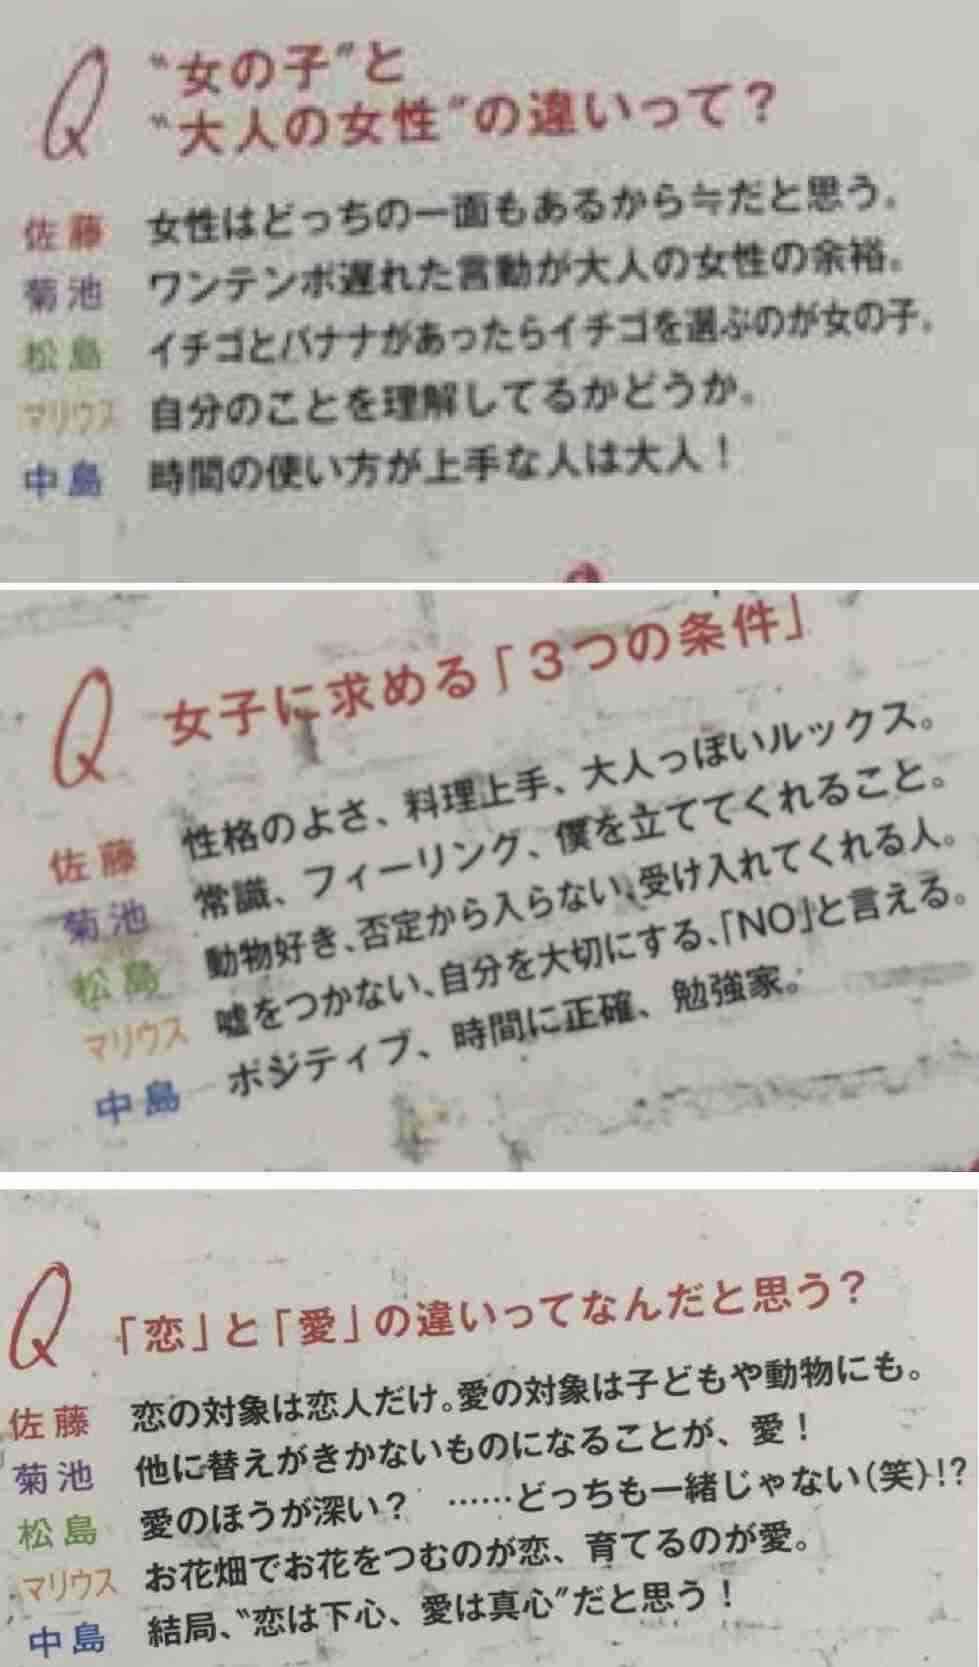 Q "女の子"と
"大人の女性"の違いって？
佐藤 女性はどっちの一面もあるから≒だと思う。
菊池 ワンテンポ遅れた言動が大人の女性の余裕。
松島 イチゴとバナナがあったらイチゴを選ぶのが女の子。
マリウス 自分のことを理解してるかどうか。
中島 時間の使い方が上手な人は大人！
Q 女子に求める「3つの条件」
佐藤 性格のよさ、料理上手、大人っぽいルックス。
菊池 常識、フィーリング、僕を立ててくれること。
松島 動物好き、否定から入らない、受け入れてくれる人。
マリウス 嘘をつかない、自分を大切にする、「NO」と言える。
中島 ポジティブ、時間に正確、勉強家。
Q 「恋」と「愛」の違いってなんだと思う？
佐藤 恋の対象は恋人だけ。愛の対象は子どもや動物にも。
菊池 他に替えがきかないものになることが、愛！
松島 愛のほうが深い？ ……どっちも一緒じゃない(笑)!?
マリウス お花畑でお花をつむのが恋、育てるのが愛。
中島 結局、"恋は下心、愛は真心"だと思う！